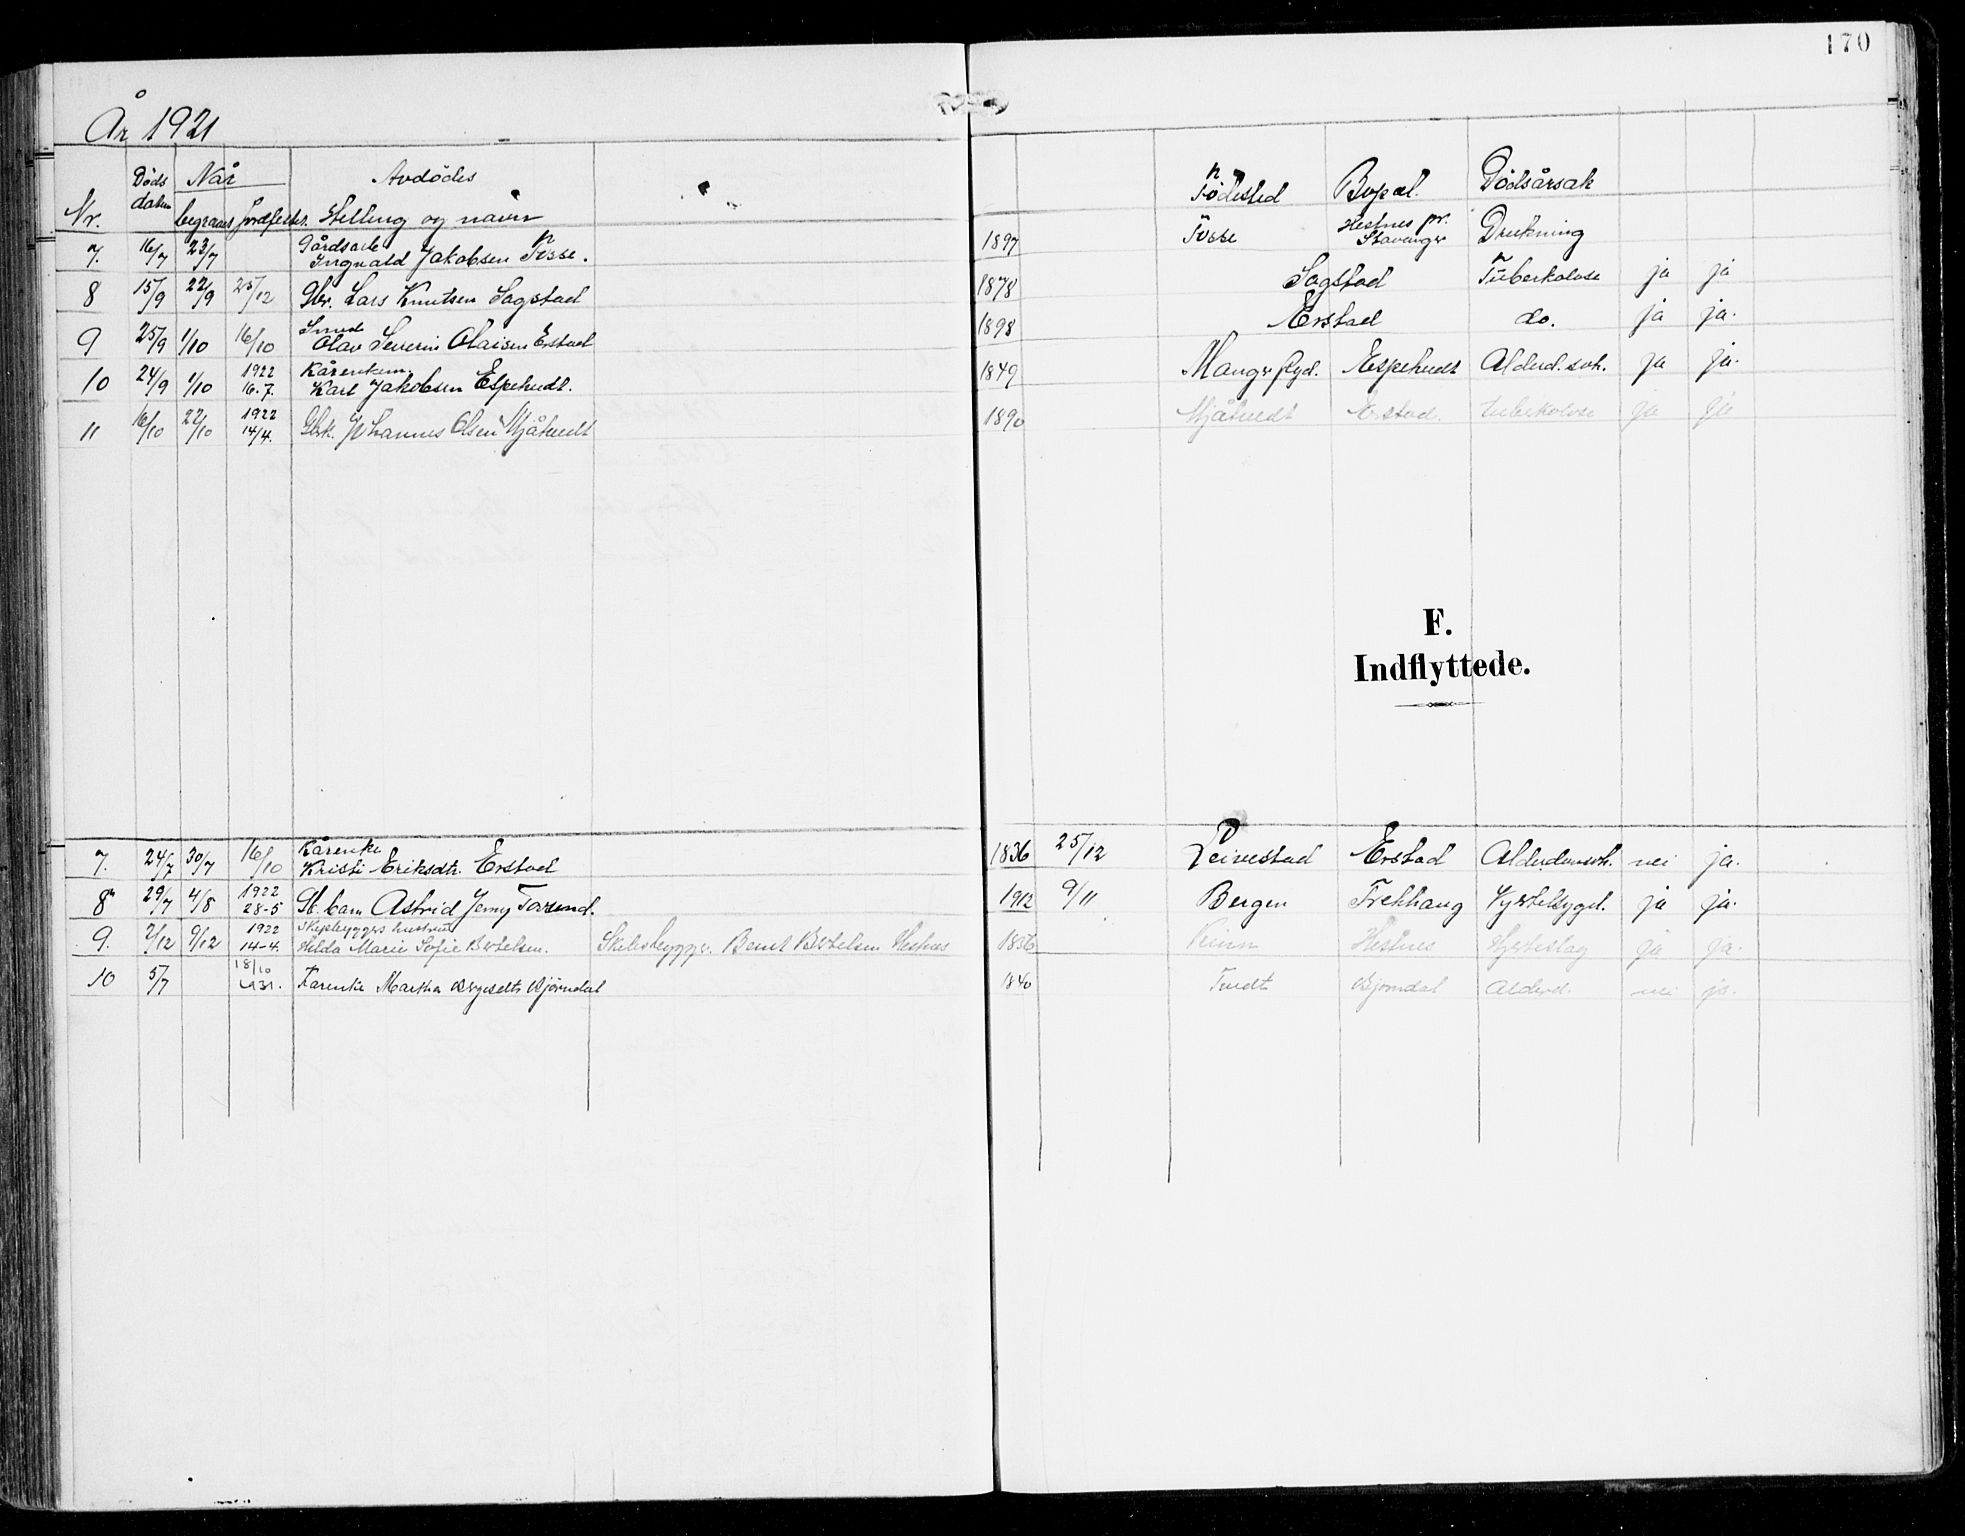 170
År 1921
Nr. Døds datum Når begravet jordfestet. Avdødes Stilling og navn Fødested Bopæl. Dødsårsak
7. 16/7 23/7 Gårdsarb. Ingvald Jakobsen Fosse. 1897 Fosse Hestnes pr. Stavanger Drukning
8 15/9 22/9 25/12 Gbr. Lars Knutsen Sagstad 1878 Sagstad Tuberkolose ja ja
9 25/9 1/10 16/10 Smed Olav Severin Olaisen Erstad 1898 Erstad do. ja ja.
10 24/9 1/10 1922 16.7. Kårenkem. Karl Jakobsen Espetvedt. 1849 Manger pgd. Espetvedt Alderd.svk. ja ja.
11 16/10 22/10 1922 14/4. Gbrk. Johannes Olsen Mjåtvedt 1890 Mjåtvedt Erstad. tuberkolose ja ja
F.
Indflyttede.
7. 24/7 30/7 16/10 Kårenke Kristi Eriksdtr. Erstad 1836 25/12 Leivestad Erstad Alderdomssvk. nei ja.
8 29/7 4/8 1922 28-5 Sk. barn Astrid Jenny Torsund. 1912 9/11 Bergen Trehhaug Hjertesygd. ja ja.
9. 2/12 9/12 1922 14-4. Skipbyggers hustru Hilda Marie Sofie Bertelsen. Skibsbygger. Bernt Bertelsen Hestnes 1856 Kinn Hestnes Hjerteslag ja ja.
10 5/7 18/10 1931. Kårenke Martha Børgesdtr Bjørndal 1840 Tvedt Bjørndal Alderd. nei ja.